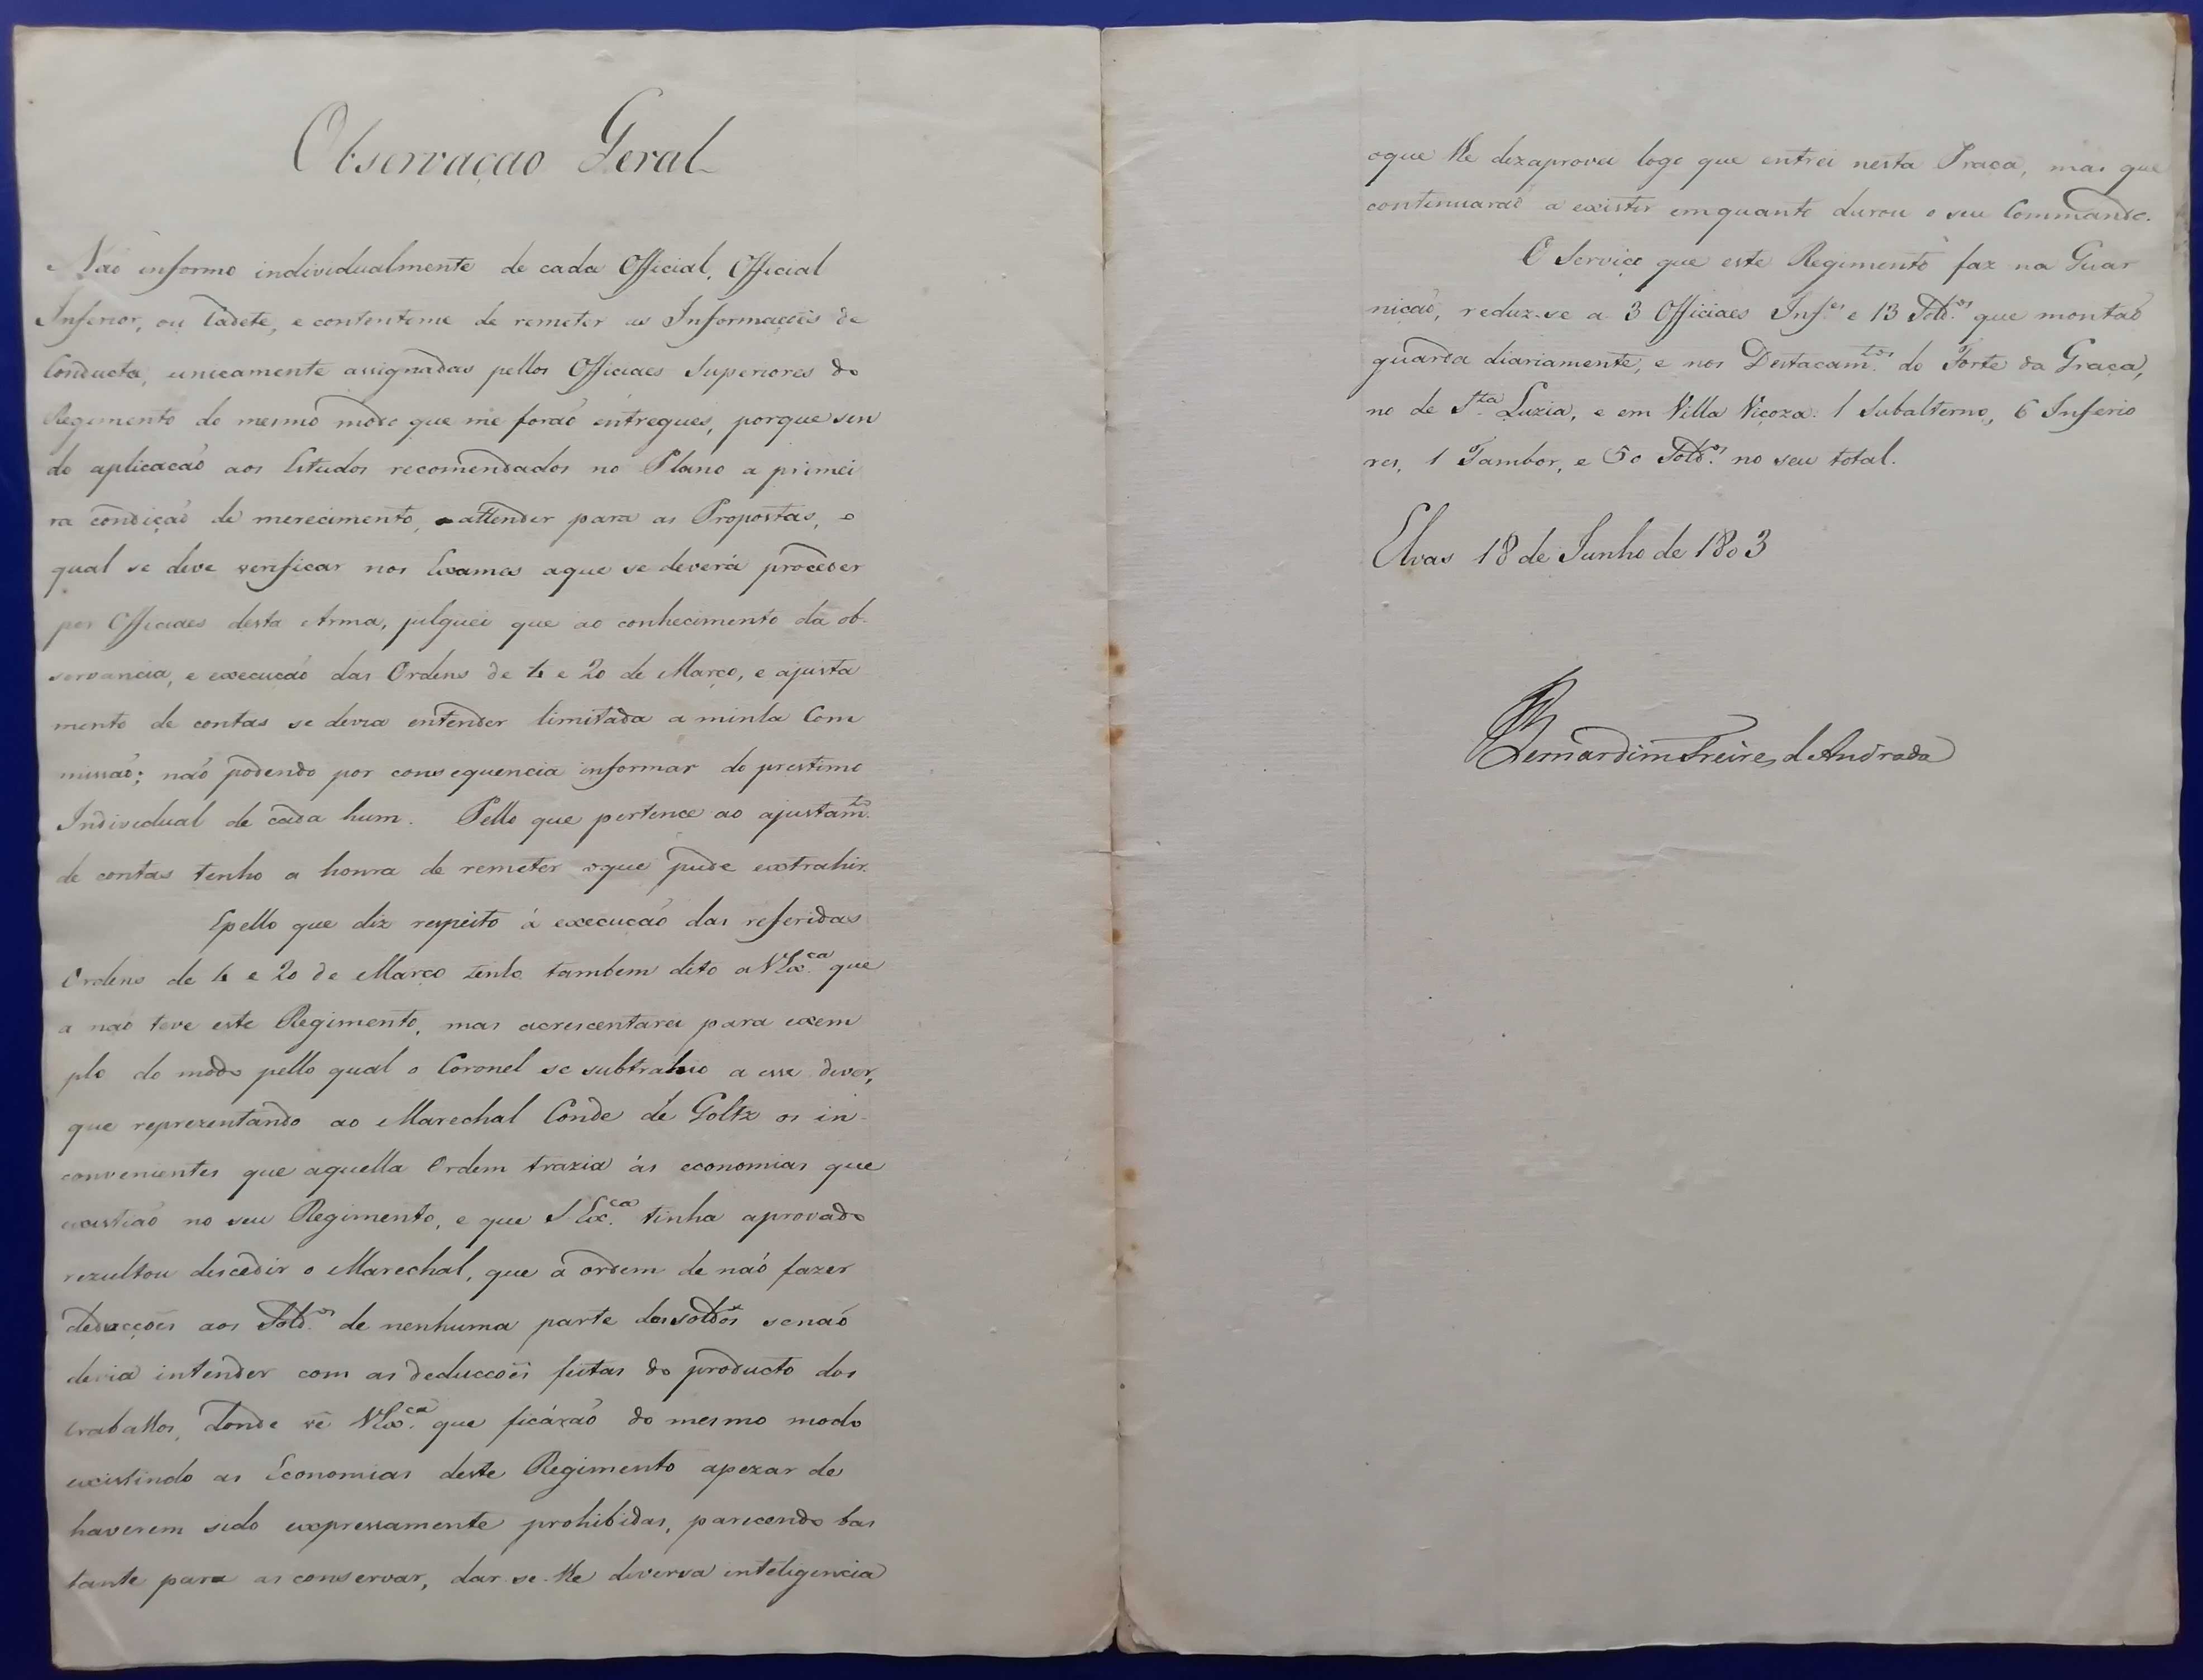 Observação Geral
Não informo individualmente de cada Official, Official
Inferior, ou Cadete, e contenteme de remeter as Informações de
Conducta, unicamente assignadas pellos Officiaes Superiores do
Regimento do mesmo modo que me forão entregues, porque sen
do aplicação aos Estudos recomendados no Plano a primei
ra condição de merecimento, a attender para as Propostas, o
qual se deve verificar nos Exames aque se deverá proceder
por Officiaes desta Arma, julguei que ao conhecimento da ob-
servancia, e execução das Ordens de 4 e 20 de Março, e ajusta
mento de contas se devia entender limitada a minha Com
missão; não podendo por consequencia informar do prestimo
Individual de cada hum. Pello que pertence ao ajustam.to
de contas tenho a honra de remeter oque pude extrahir.
Epello que diz respeito á execução das referidas
Ordens de 4 e 20 de Março tenho tambem dito a V Ex.ca que
a não teve este Regimento, mas acrescentarei para exem
plo do modo pello qual o Coronel se subtrahio a esse dever,
que reprezentando ao Marechal Conde de Goltz os in-
convenientes que aquella Ordem trazia ás economias que
existião no seu Regimento, e que S. Ex.ca tinha aprovado
rezultou descedir o Marechal, que a ordem de não fazer
deducções aos Sold.os de nenhuma parte dos soldos senão
devia intender com as deducções feitas do producto dos
trabalhos, donde vê V Ex.ca que ficárão do mesmo modo
existindo as Economias deste Regimento apezar de
haverem sido expressamente prohibidas, parecendo bas
tante para as conservar, dar-se-lhe diversa inteligencia
oque lhe dezaprovei logo que entrei nesta Praça, mas que
continuarão a existir emquanto durou o seu Commando.
O Serviço que este Regimento faz na Guar
nição, reduz-se a 3 Officiaes Inf.es e 13 Sold.os que montão
guarda diariamente, e nos Destacam.tos do Forte da Graça,
no de S.ta Luzia, e em Villa Viçoza: 1 Subalterno, 6 Inferio
res, 1 Tambor, e 50 Sold.os no seu total.
Elvas 18 de Junho de 1803
Bernardim Freire d Andrada